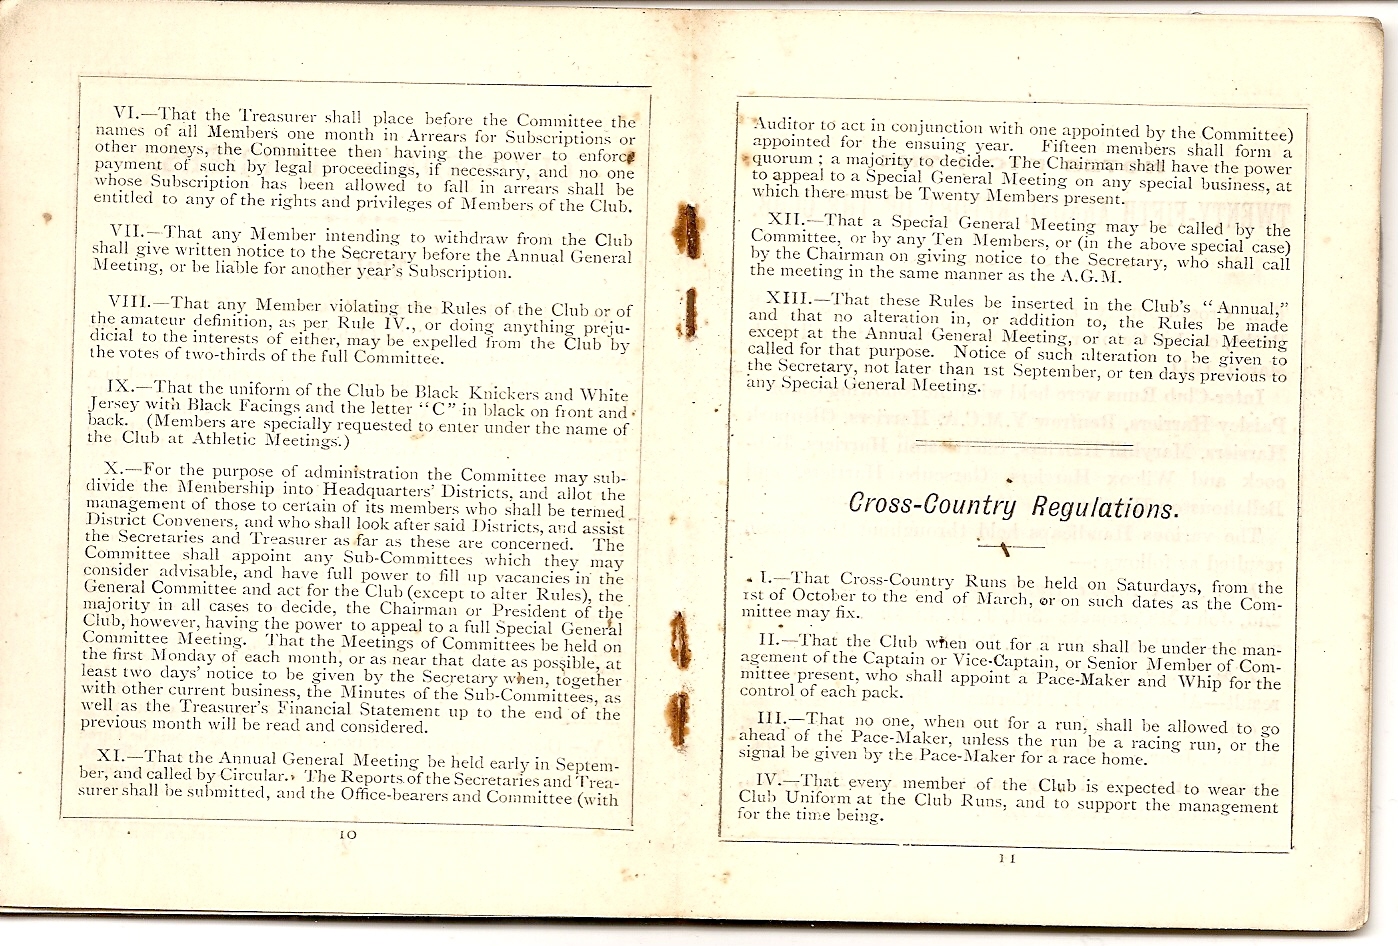 VI.—That the Treasurer shall place before the Committee the
names of all Members one month in Arrears for Subscriptions or
other moneys, the Committee then having the power to enforce
payment of such by legal proceedings, if necessary, and no one
whose Subscription has been allowed to fall in arrears shall be
entitled to any of the rights and privileges of Members of the Club.
VII.—That any Member intending to withdraw from the Club
shall give written notice to the Secretary before the Annual General
Meeting, or be liable for another year's Subscription.
VIII.—That any Member violating the Rules of the Club or of
the amateur definition, as per Rule IV., or doing anything preju-
dicial to the interests of either, may be expelled from the Club by
the votes of two-thirds of the full Committee.
IX.—That the uniform of the Club be Black Knickers and White
Jersey with Black Facings and the letter "C" in black on front and
back. (Members are specially requested to enter under the name of
the Club at Athletic Meetings.)
X.—For the purpose of administration the Committee may sub-
divide the Membership into Headquarters' Districts, and allot the
management of those to certain of its members who shall be termed
District Conveners, and who shall look after said Districts, and assist
the Secretaries and Treasurer as far as these are concerned. The
Committee shall appoint any Sub-Committees which they may
consider advisable, and have full power to fill up vacancies in the
General Committee and act for the Club (except to alter Rules), the
majority in all cases to decide, the Chairman or President of the
Club, however, having the power to appeal to a full Special General
Committee Meeting. That the Meetings of Committees be held on
the first Monday of each month, or as near that date as possible, at
least two days' notice to be given by the Secretary when, together
with other current business, the Minutes of the Sub-Committees, as
well as the Treasurer's Financial Statement up to the end of the
previous month will be read and considered.
XI.—That the Annual General Meeting be held early in Septem-
ber, and called by Circular. The Reports of the Secretaries and Trea-
surer shall be submitted, and the Office-bearers and Committee (with
10
Auditor to act in conjunction with one appointed by the Committee)
appointed for the ensuing year. Fifteen members shall form a
quorum ; a majority to decide. The Chairman shall have the power
to appeal to a Special General Meeting on any special business, at
which there must be Twenty Members present.
XII.—That a Special General Meeting may be called by the
Committee, or by any Ten Members, or (in the above special case)
by the Chairman on giving notice to the Secretary, who shall call
the meeting in the same manner as the A.G.M.
XIII.—That these Rules be inserted in the Club's "Annual,"
and that no alteration in, or addition to, the Rules be made
except at the Annual General Meeting, or at a Special Meeting
called for that purpose. Notice of such alteration to be given to
the Secretary, not later than 1st September, or ten days previous to
any Special General Meeting.
Cross-Country Regulations.
I.—That Cross-Country Runs be held on Saturdays, from the
1st of October to the end of March, or on such dates as the Com-
mittee may fix.
II.—That the Club when out for a run shall be under the man-
agement of the Captain or Vice-Captain, or Senior Member of Com-
mittee present, who shall appoint a Pace-Maker and Whip for the
control of each pack.
III.—That no one, when out for a run, shall be allowed to go
ahead of the Pace-Maker, unless the run be a racing run, or the
signal be given by the Pace-Maker for a race home.
IV.—That every member of the Club is expected to wear the
Club Uniform at the Club Runs, and to support the management
for the time being.
11